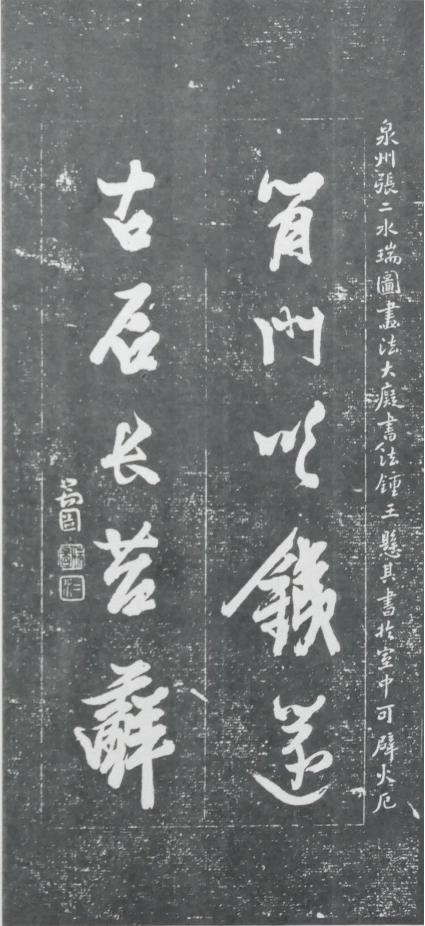 泉州張二水瑞圖畫法大癡書法鍾王懸其書扵室中可辟火厄
門以鐵
古長苔蘚
瑞圖